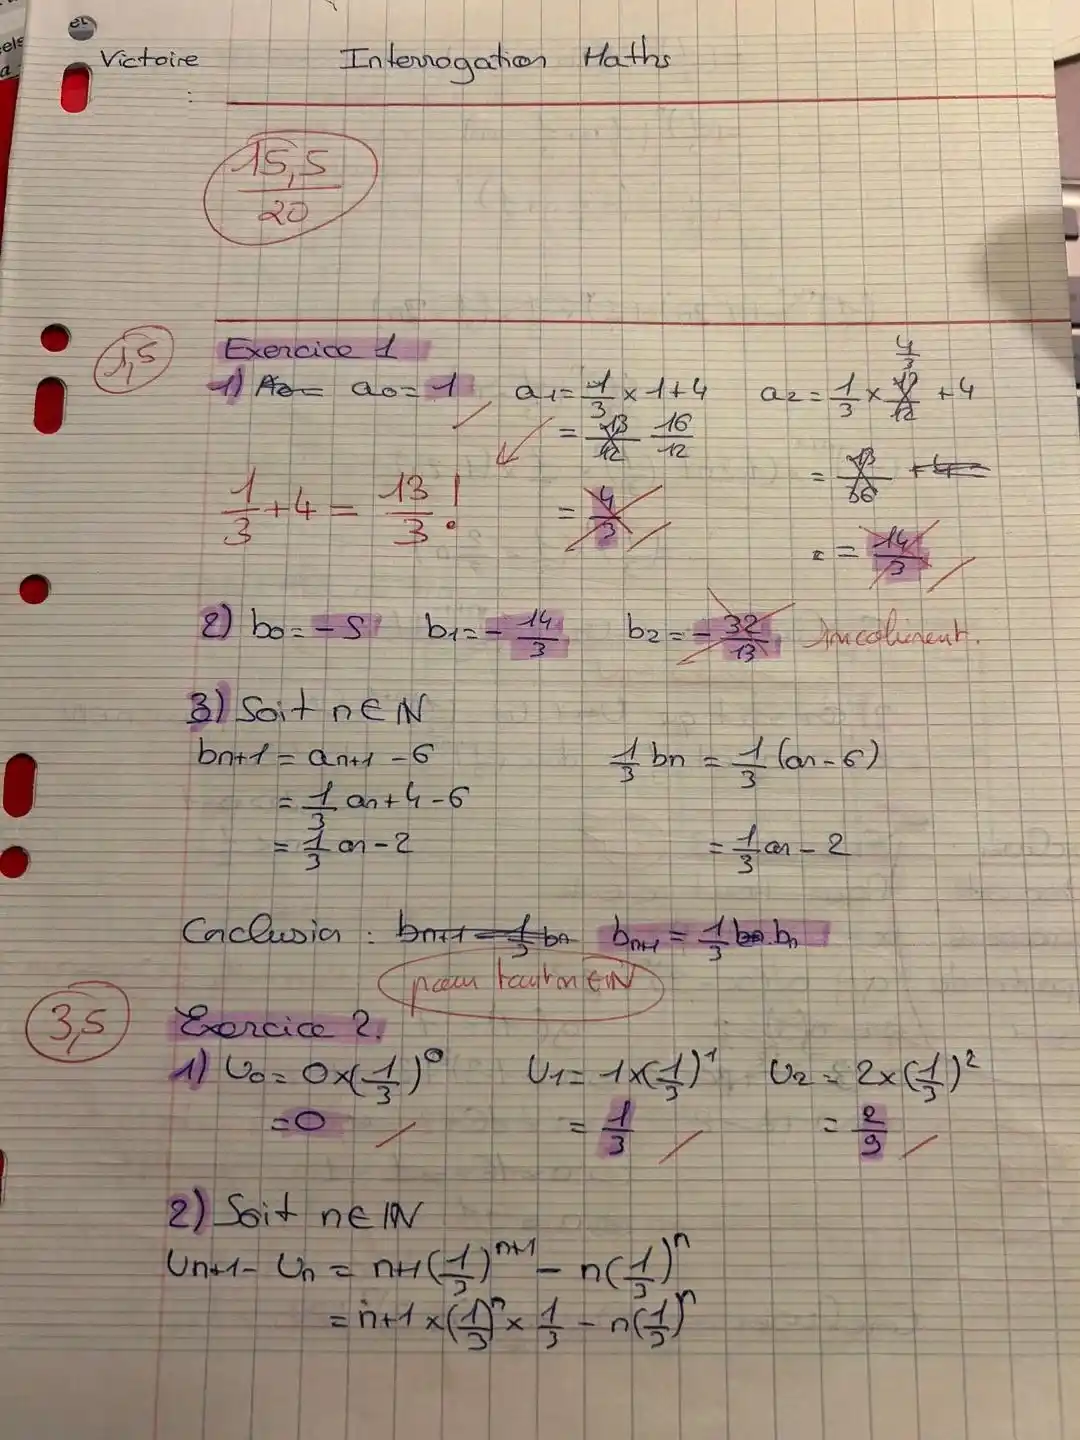 Victoire Interrogation Maths
15,5
20
1,5
Exercice 1
1) A0= a0=1 a1=1/3×1+4 a2=1/3×4/3+4
=13/12 16/12 =13/36+4
1/3+4=13/3! =4/3 = 14/3
2) b0=-5 b1=-14/3 b2=-32/13 Incohérent.
3) Soit n∈ℕ
bn+1=an+1-6 1/3 bn=1/3(an-6)
=1/3 an+4-6
=1/3 an-2 =1/3 an-2
Conclusion : bn+1=1/3 bn bn+1=1/3 bn
pour tout n∈ℕ
3,5
Exercice 2.
1) U0=0×(1/3)^0 U1=1×(1/3)^1 U2=2×(1/3)^2
=0 =1/3 =2/9
2) Soit n∈ℕ
Un+1-Un=n+1(1/3)^n+1-n(1/3)^n
=n+1×(1/3)^n×1/3-n(1/3)^n